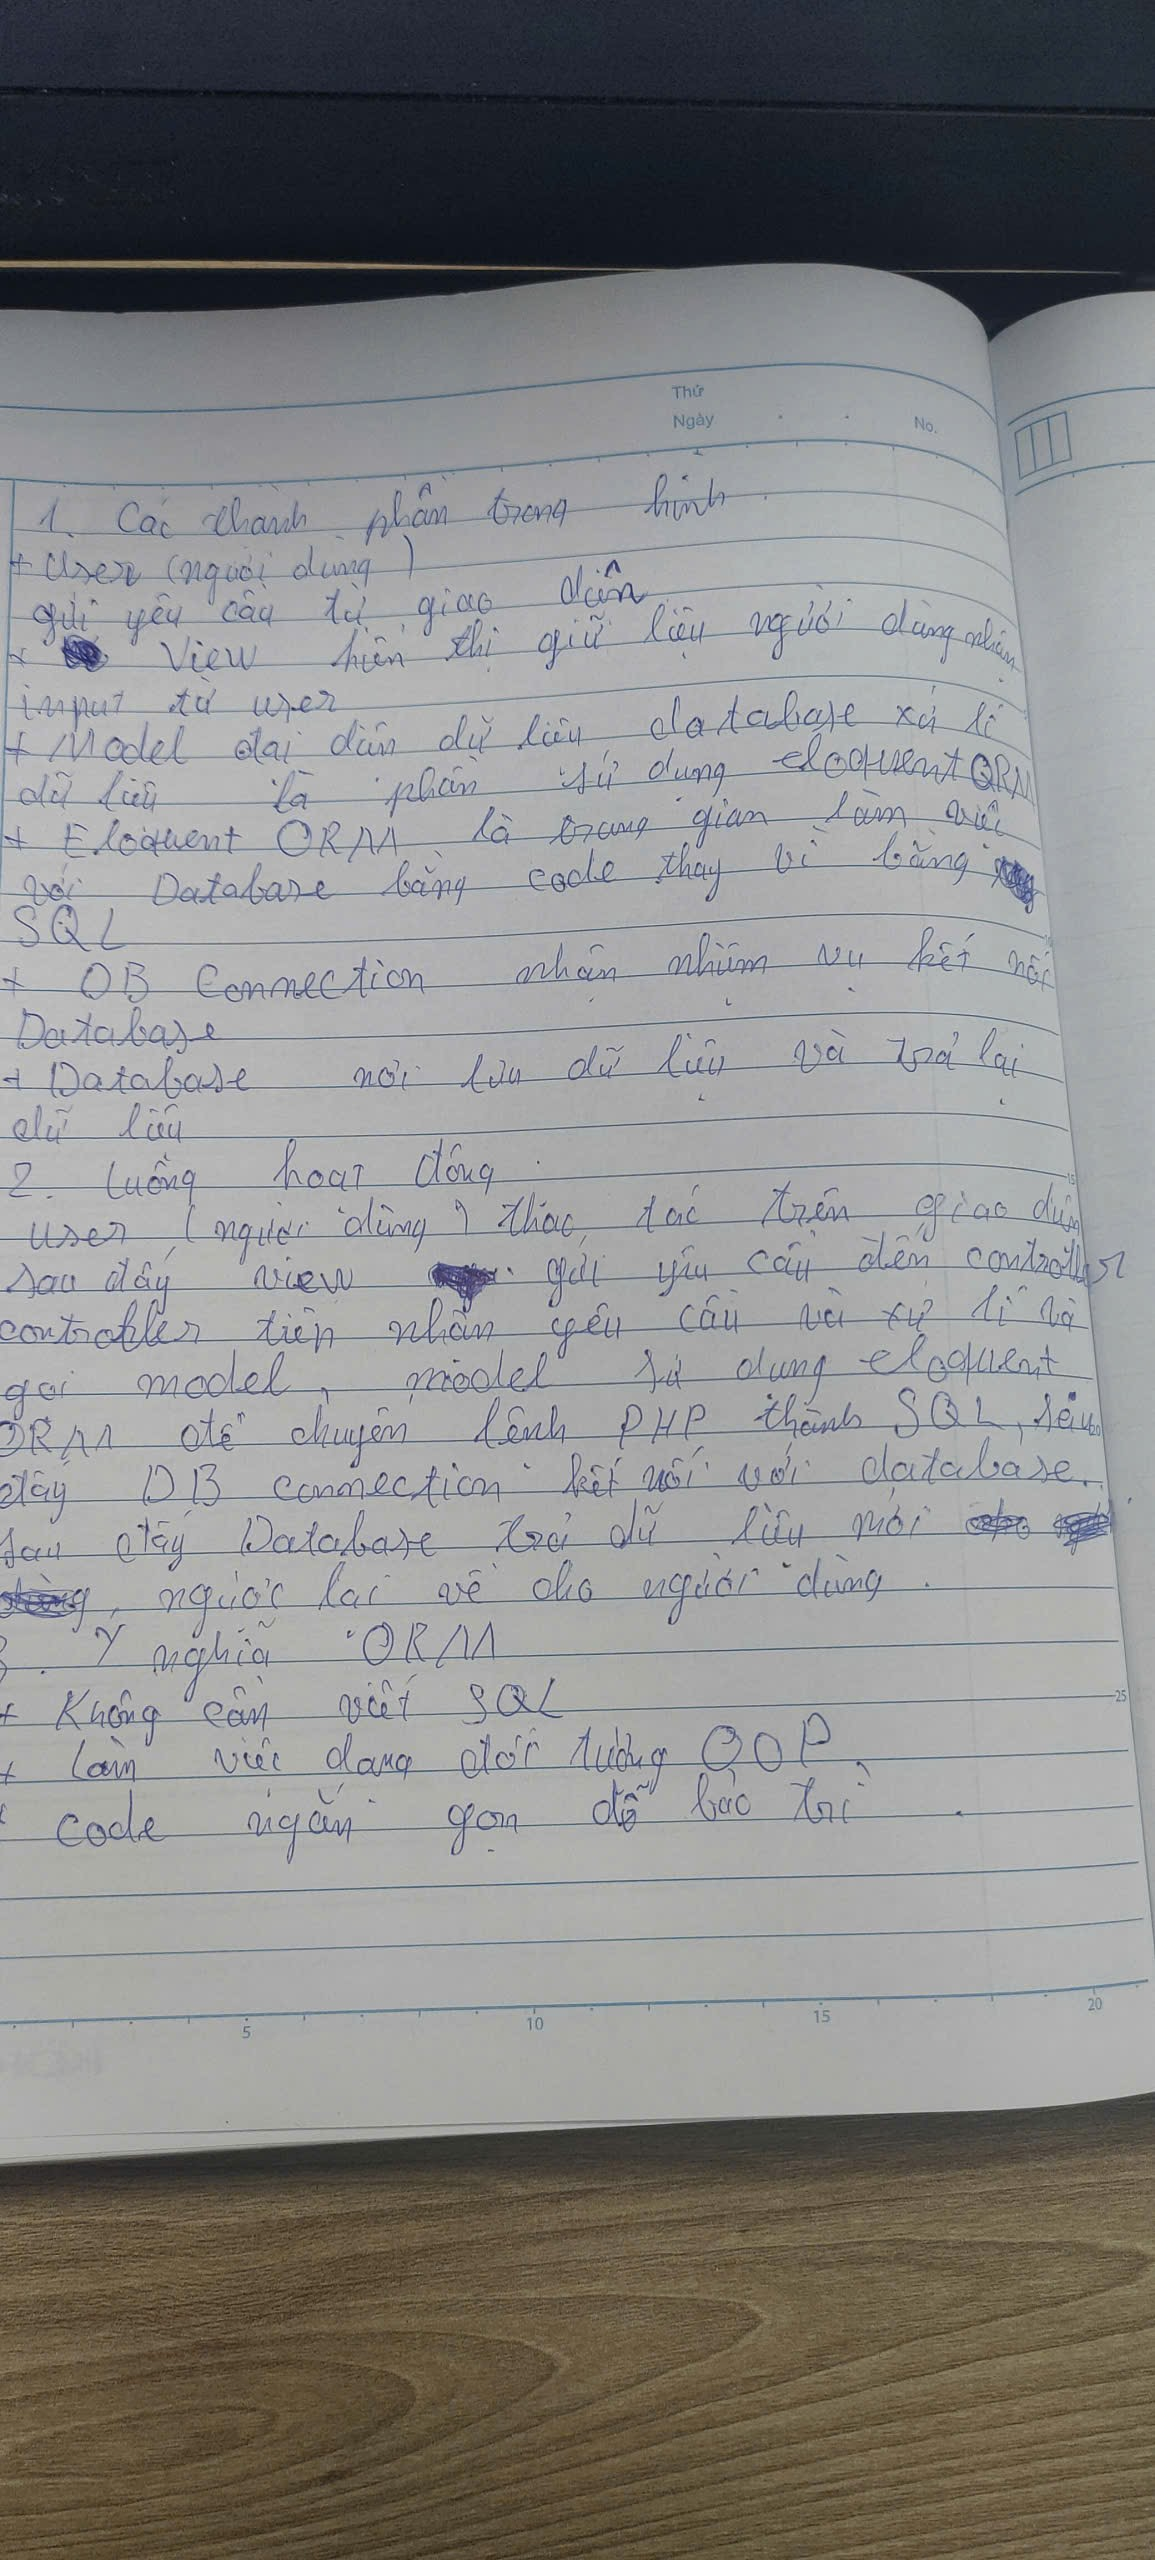 Thứ
Ngày
No.
1. Các thành phần trong hình
+ User (người dùng)
gửi yêu cầu từ giao diên
+ View hiển thị giữ liệu người dùng nhận
input từ user
+ Model đại diên dữ liêu database xử lí
dữ liêu là phần sử dụng eloquent ORM
+ Eloquent ORM là trung gian làm việc
với Database bằng code thay vì bằng
SQL
+ DB Connection nhận nhiệm vụ kết nối
Database
+ Database nơi lưu dữ liệu và trả lại
dữ liêu
2. Luồng hoạt động
user (người dùng) thao tác trên giao diên
sau đấy view gửi yêu cầu đến controller
controller tiên nhân yêu cầu và xử lí và
gọi model, model sử dụng eloquent
ORM để chuyên lênh PHP thành SQL, sau
đấy DB connection kết nối với database.
sau đấy Database trả dữ liêu mới
, ngược lại về cho người dùng.
3. Ý nghĩa ORM
+ Không cần viết SQL
+ Làm viêc dang đối tượng OOP.
+ code ngắn gọn dễ bảo trì.
15
20
25
5
10
15
20